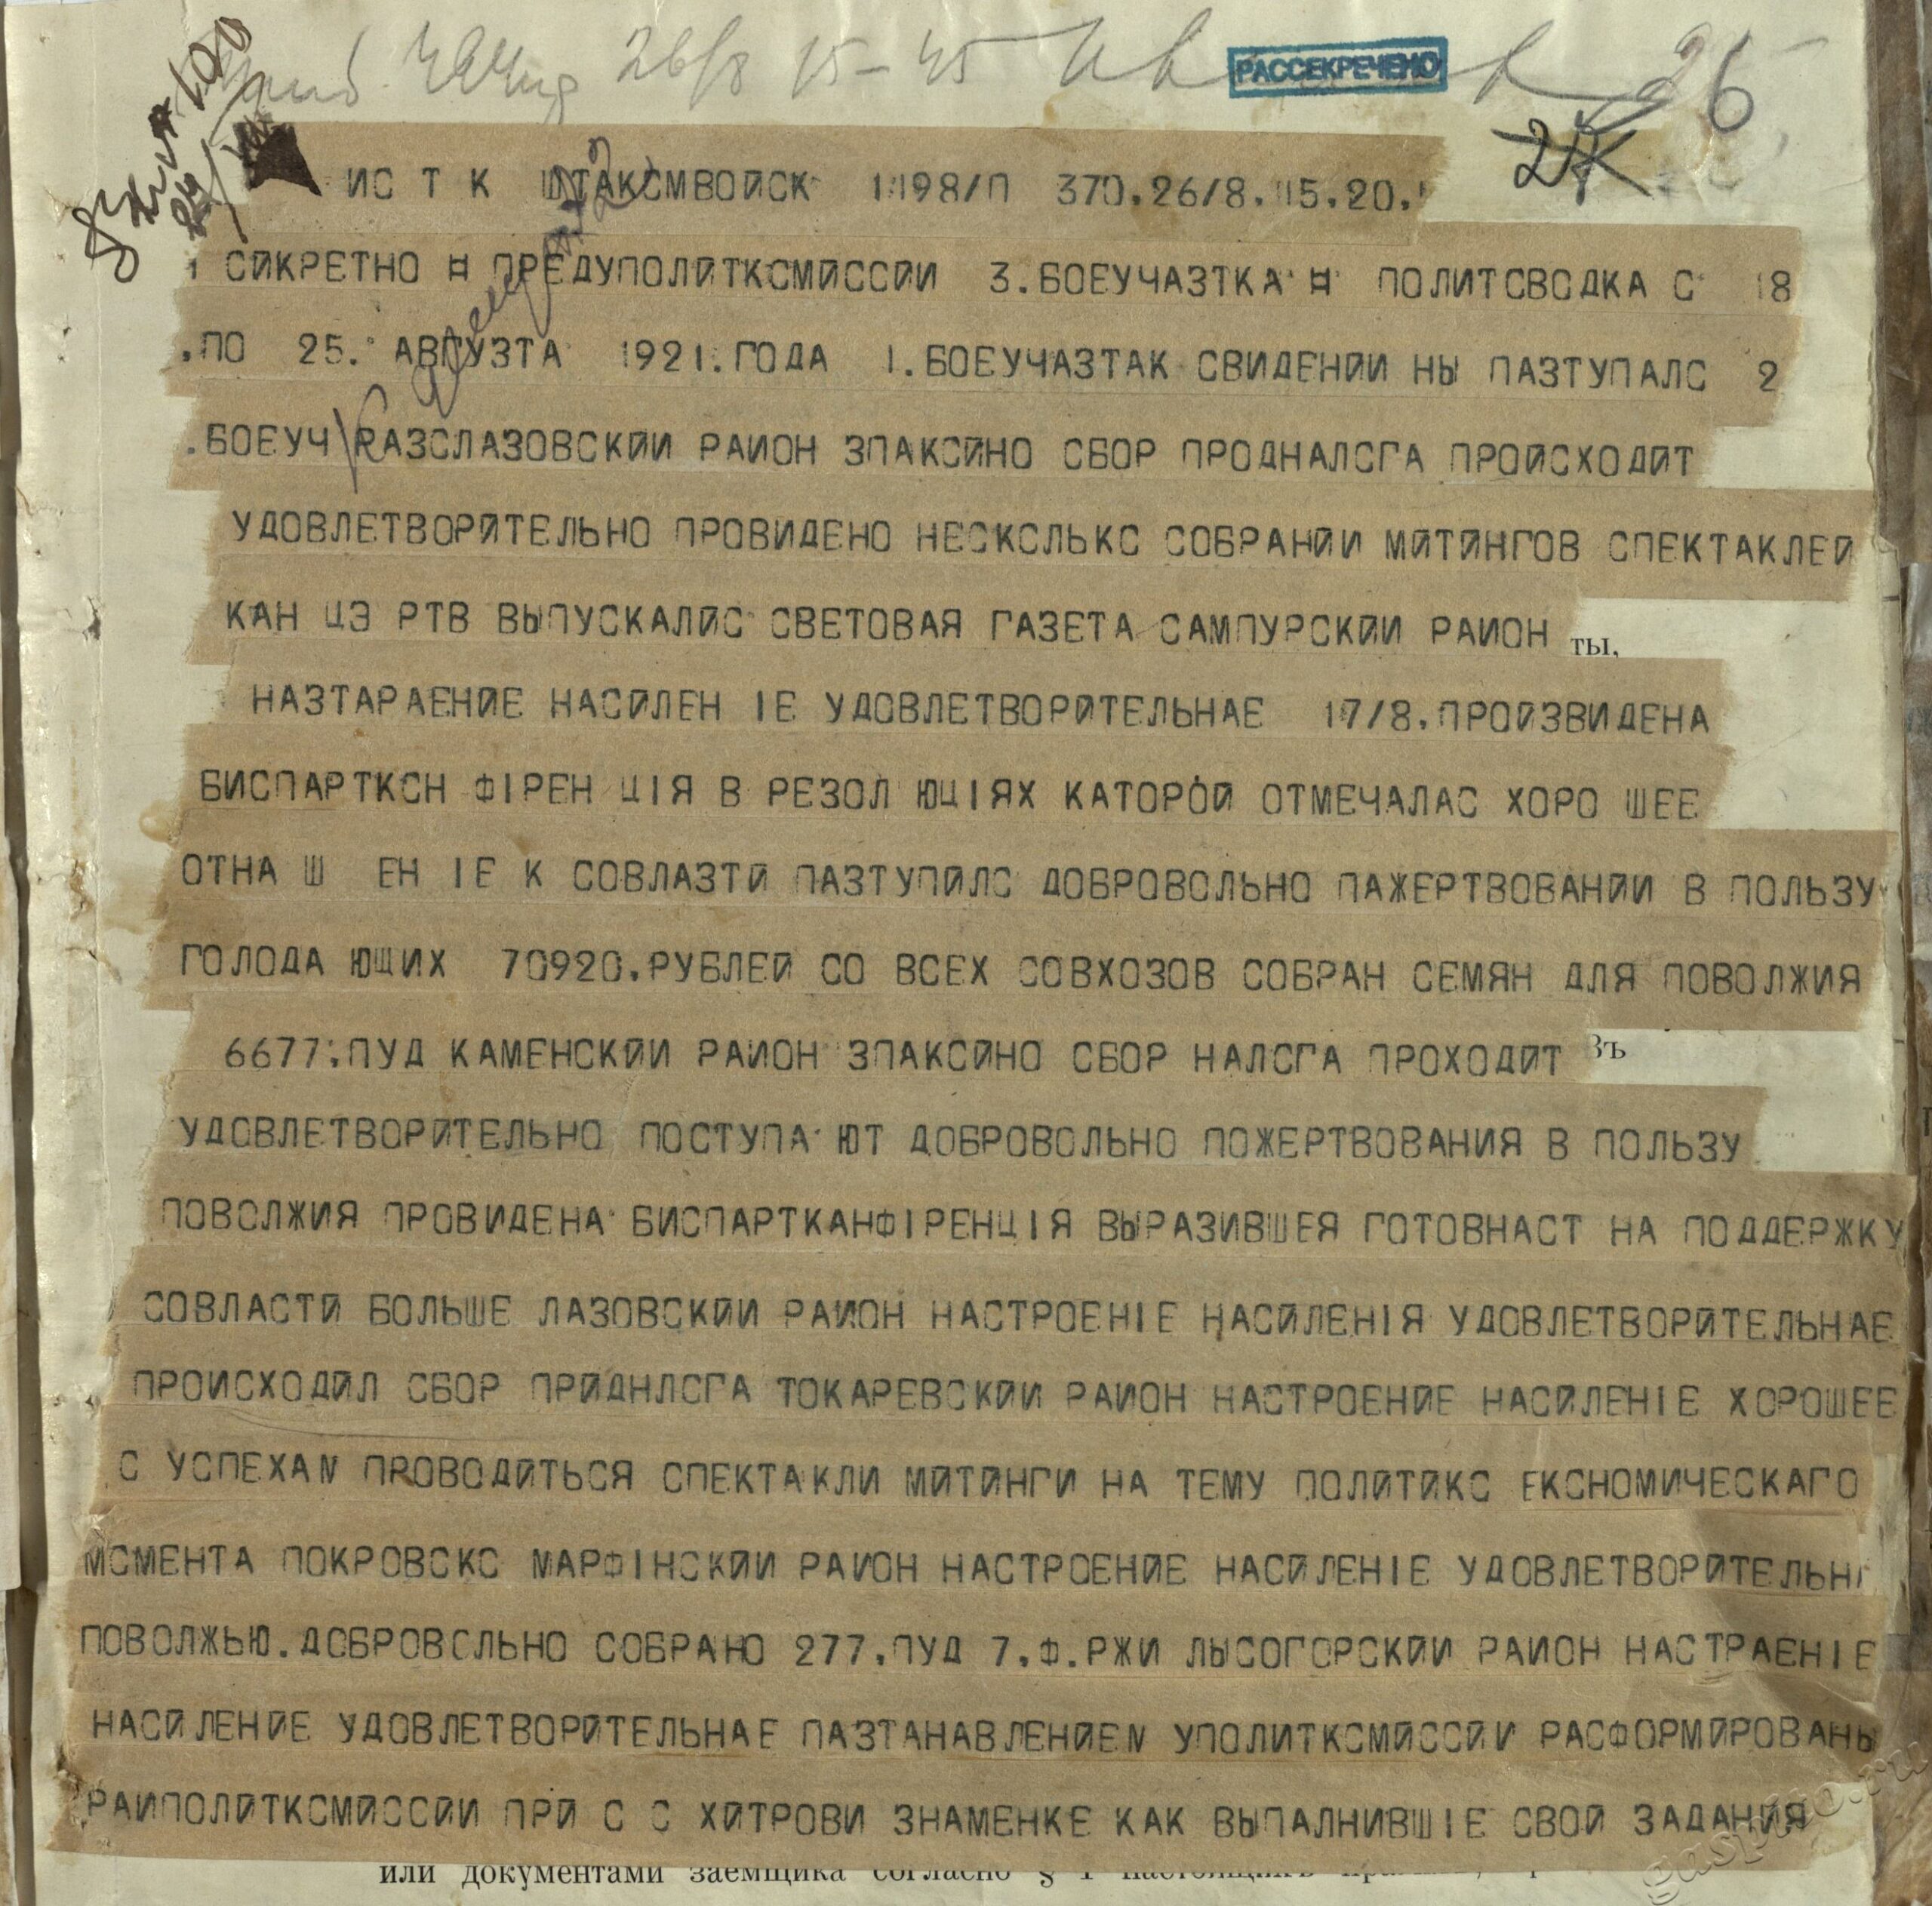 26/8 15-45
РАССЕКРЕЧЕНО
26
ИС Т К ШТАКСМВОЙСК 1198/П 370.26/8.15.20.
СИКРЕТНО ¤ ПРЕДУПОЛИТКСМИССИИ 3.БОЕУЧАЗТКА ¤ ПОЛИТСВСДКА С 18
.ПО 25. АВГУЗТА 1921.ГОДА 1.БОЕУЧАЗТАК СВИДЕНИИ НЫ ПАЗТУПАЛС 2
.БОЕУЧ РАЗСЛАЗОВСКИИ РАИОН ЗПАКСИНО СБОР ПРОДНАЛСГА ПРОИСХОДИТ
УДОВЛЕТВОРИТЕЛЬНО ПРОВИДЕНО НЕСКСЛЬКС СОБРАНИИ МИТИНГОВ СПЕКТАКЛЕИ
КАН ЦЭ РТВ ВЫПУСКАЛИС СВЕТОВАЯ ГАЗЕТА САМПУРСКИИ РАИОН
ты,
НАЗТАРАЕНИЕ НАСИЛЕН IЕ УДОВЛЕТВОРИТЕЛЬНАЕ 17/8.ПРОИЗВИДЕНА
БИСПАРТКСН ФIРЕН ЦIЯ В РЕЗОЛ ЮЦIЯХ КАТОРОЙ ОТМЕЧАЛАС ХОРО ШЕЕ
ОТНА Ш ЕН IЕ К СОВЛАЗТИ ПАЗТУПИЛС ДОБРОВОЛЬНО ПАЖЕРТВОВАНИИ В ПОЛЬЗУ
ГОЛОДА ЮЩИХ 70920.РУБЛЕЙ СО ВСЕХ СОВХОЗОВ СОБРАН СЕМЯН ДЛЯ ПОВОЛЖИЯ
6677.ПУД КАМЕНСКИИ РАИОН ЗПАКСИНО СБОР НАЛСГА ПРОХОДИТ
въ
УДОВЛЕТВОРИТЕЛЬНО ПОСТУПА ЮТ ДОБРОВОЛЬНО ПОЖЕРТВОВАНИЯ В ПОЛЬЗУ
ПОВОЛЖИЯ ПРОВИДЕНА БИСПАРТКАНФIРЕНЦIЯ ВЫРАЗИВШЕЯ ГОТОВНАСТ НА ПОДДЕРЖКУ
СОВЛАСТИ БОЛЬШЕ ЛАЗОВСКИИ РАИОН НАСТРОЕНIЕ НАСИЛЕНIЯ УДОВЛЕТВОРИТЕЛЬНАЕ
ПРОИСХОДИЛ СБОР ПРИДНЛСГА ТОКАРЕВСКИИ РАИОН НАСТРОЕНИЕ НАСИЛЕНIЕ ХОРОШЕЕ
С УСПЕХАМ ПРОВОДИТЬСЯ СПЕКТАКЛИ МИТИНГИ НА ТЕМУ ПОЛИТИКС ЕКСНОМИЧЕСКАГО
МСМЕНТА ПОКРОВСКС МАРФIНСКИИ РАИОН НАСТРОЕНИЕ НАСИЛЕНIЕ УДОВЛЕТВОРИТЕЛЬН
ПОВОЛЖЬЮ.ДОБРОВСЛЬНО СОБРАНО 277.ПУД 7.Ф.РЖИ ЛЫСОГОРСКИИ РАИОН НАСТРАЕНIЕ
НАСИЛЕНИЕ УДОВЛЕТВОРИТЕЛЬНАЕ ПАЗТАНАВЛЕНИЕМ УПОЛИТКСМИССИИ РАСФОРМИРОВАНЫ
РАИПОЛИТКСМИССИИ ПРИ С С ХИТРОВИ ЗНАМЕНКЕ КАК ВЫПАЛНИВШIЕ СВОИ ЗАДАНИЯ
или документами заемщика согласно § 1
gaspito.ru